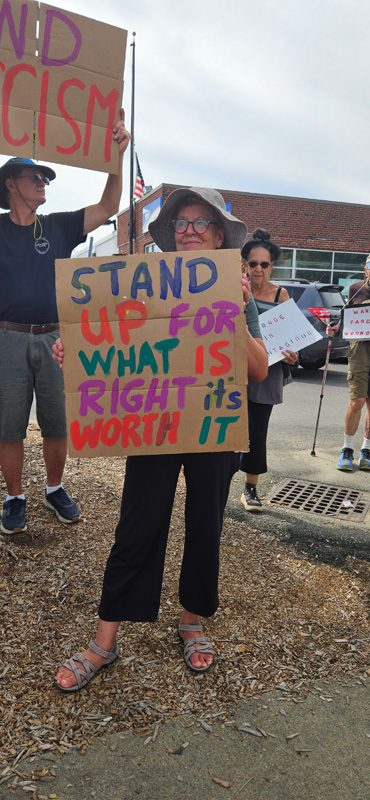 ND
CISM
STAND
UP FOR
WHAT IS
RIGHT it's
WORTH IT
RAGE
IS
TAGIOUS
MAK